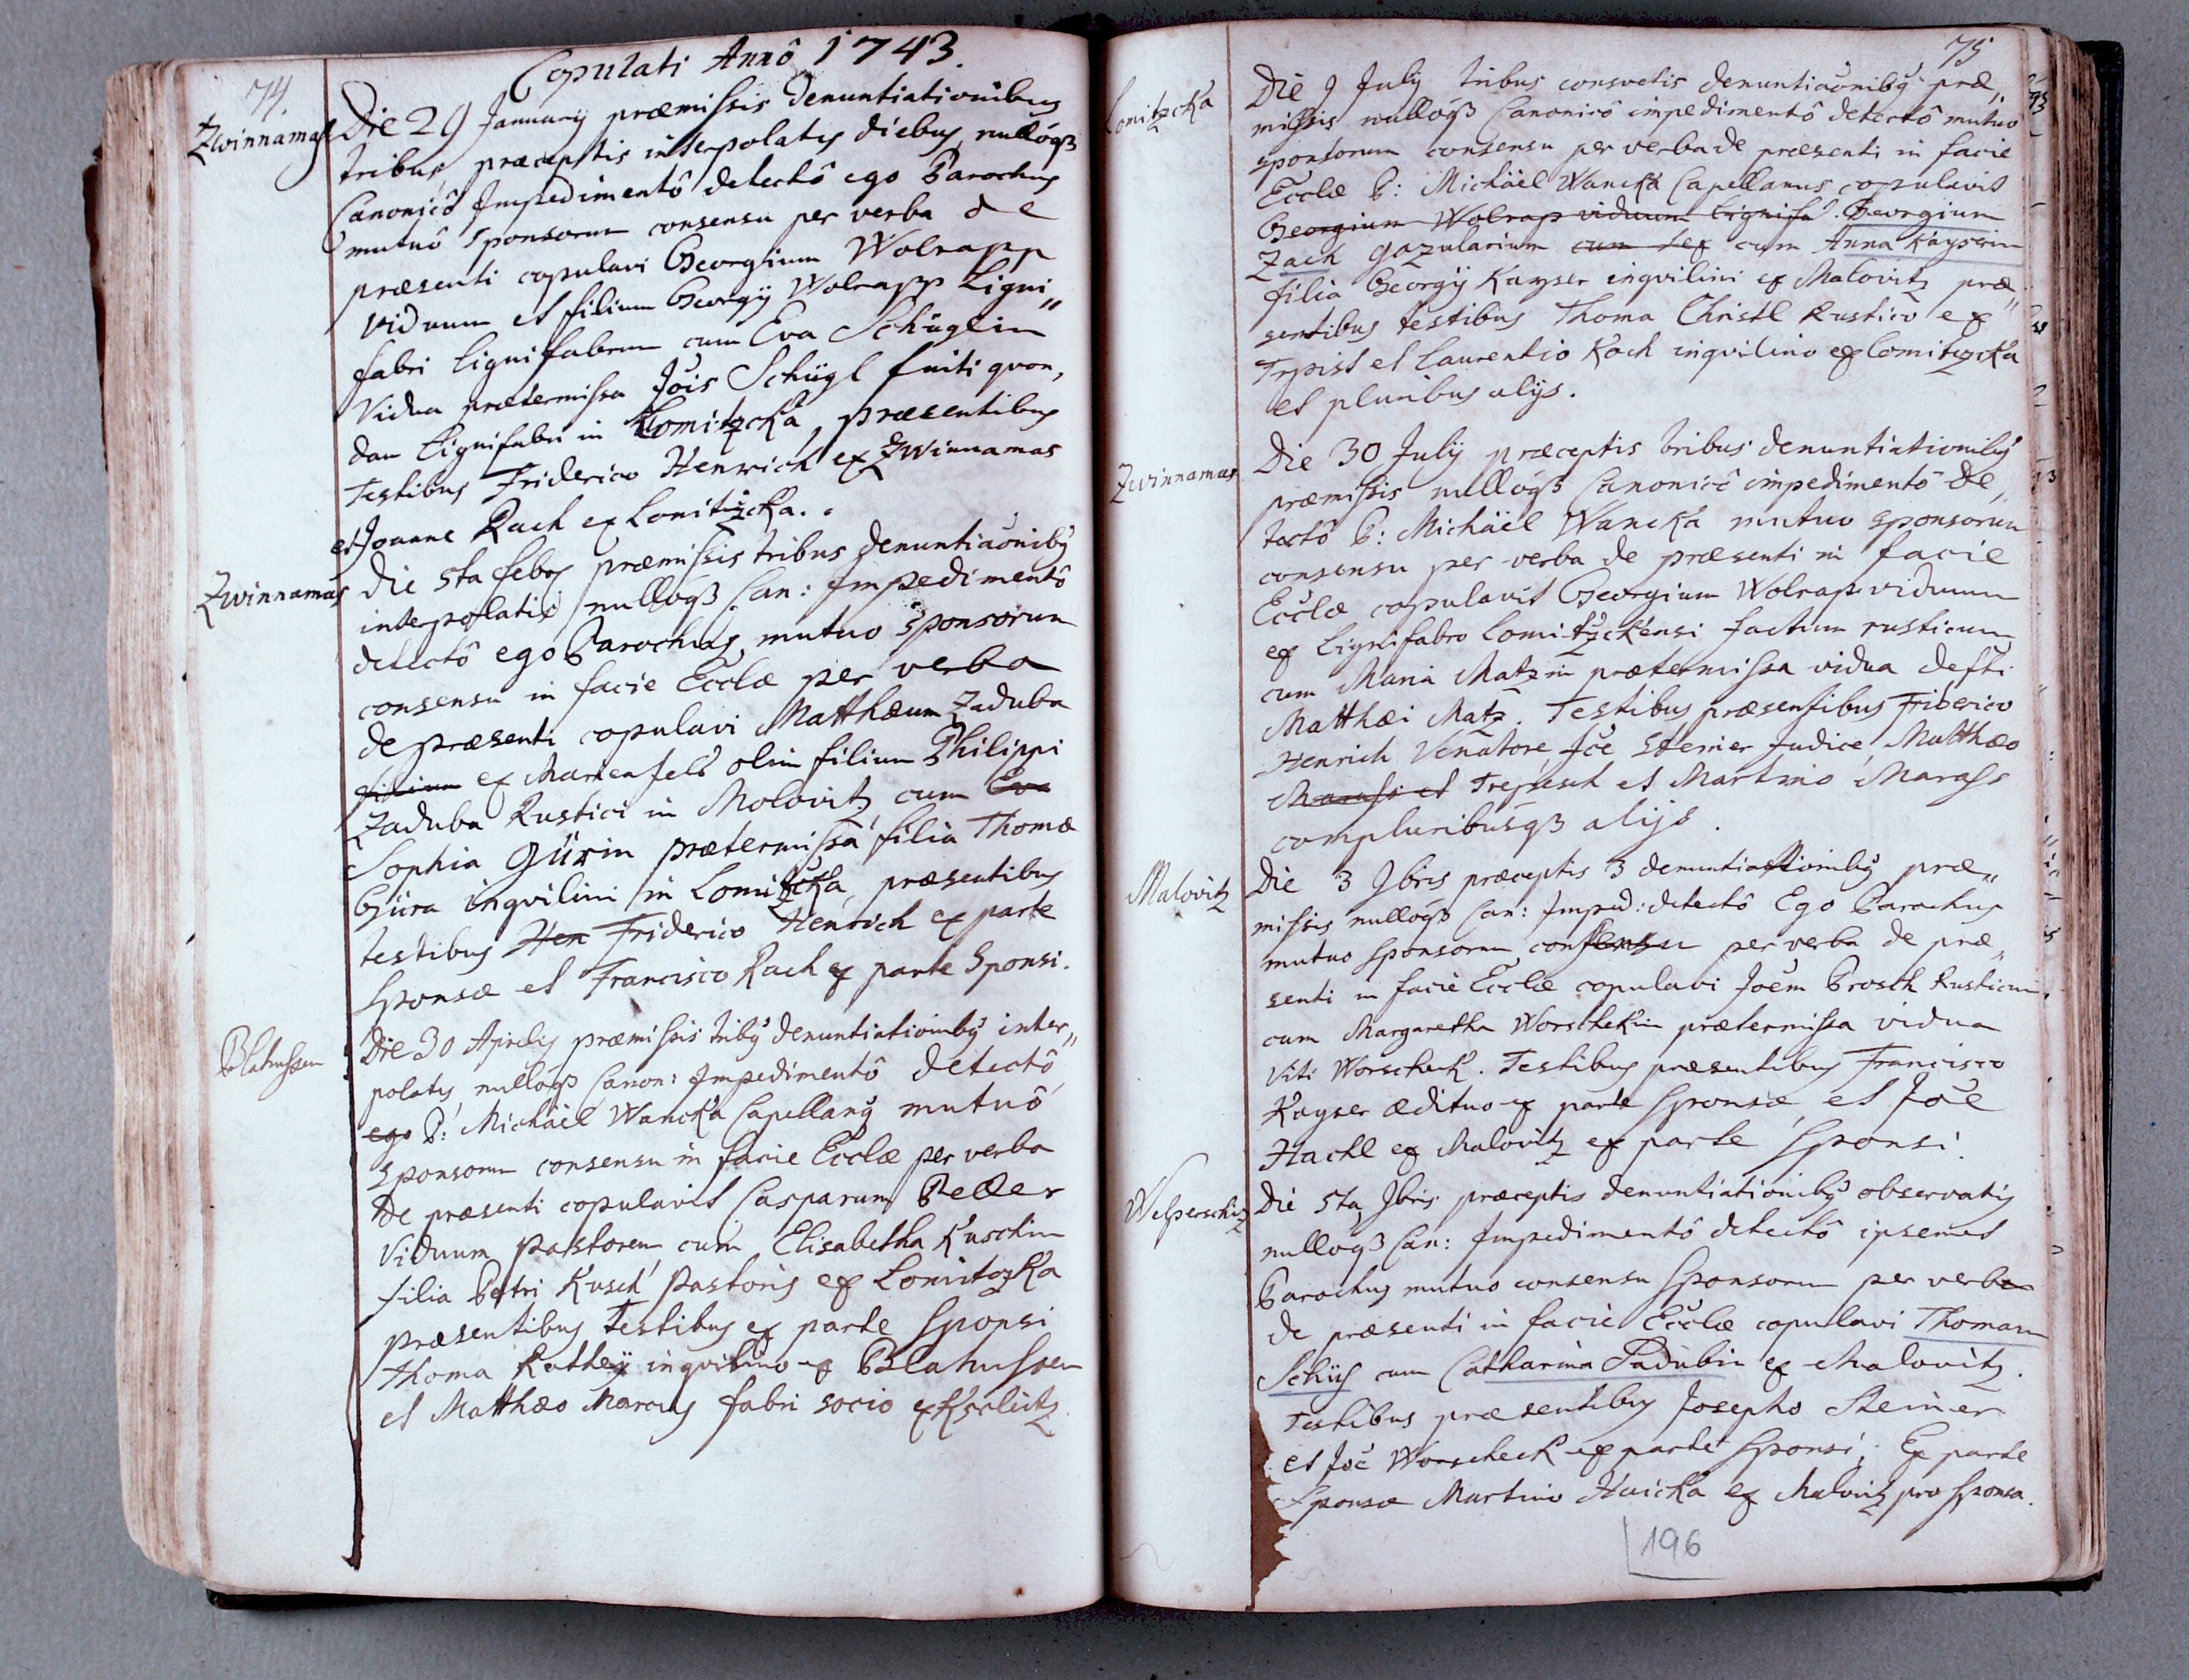 74.
Copulati Annô 1743.
Zwinnamas
Die 29 Januarij præmissis Denuntiationibus
tribus præceptis interpolatis diebus, nullóqз
Canonicô Impedimentô detectô ego Parochus
mutuô Sponsorum consensu per verba de
præsenti copulavi Georgium Wolrapp
Viduum et filium Georgij Wolrapp Ligni„
fabri Lignifabrum cum Eva Schüglin
Vidua prætermissa Jois Schügl fuiti quon,
dam Lignifabri in Lomitzcka, præsentibus
Testibus Friderico Henrich ex Zwinnamas
et Joanne Rach ex Lomitzcka.
Zwinnamas
Die 5ta febrs præmissis tribus denuntiaoniby
interpolatis nullóqз Can: Impedimentô
detectô ego Parochus, mutuo Sponsorum
consensu in facie Ecclæ per verba
de præsenti copulavi Matthæum Zaduba
filium ex Marienfels olim filium Philippi
Zaduba Rustici in Molovitz, cum Eva
Sophia Gürin prætermissa filia Thomæ
Güra inqvilini in Lomitzcka, præsentibus
testibus Hen Friderico Henrich ex parte
Sponsæ et Francisco Rach ex parte Sponsi.
Blahussen
Die 30 Aprilis præmissis triby denuntiationiby inter„
polatis nullóqз Canon: Impedimentô detectô
ego P: Michäel Wancka Capellany mutuô
Sponsorum consensu in facie Ecclæ per verba
de præsenti copulavit Casparum Peller
Viduum Pastorem cum Elisabetha Kuschin
filia Petri Kusch Pastoris ex Lomitozka
præsentibus Testibus ex parte Sponsi
Thoma Rathey inqvilino ex Blahussen
et Matthæo Marcus fabri socio ex Kscheütz
75
Lomitzcka
Die 9 July tribus consvetis denuntiaoniby præ„
missis nullóqз Canonicô impedimentô detectô mutuo
sponsorum consensu per verba de præsenti in facie
Ecclæ P: Michäel Wancka Capellanus copulavit
Georgium Wolrap viduum Lignifa Georgium
Zach Gazularium cum sex cum Anna Kayserin
filia Georgij Kayser inqvilini ex Malovitz præ„
sentibus testibus Thoma Christl Rustico ex
Trpist et Laurentio Koch inqvilino ex Lomitzcka
et pluribus alijs.
Zwinnamas
Die 30 July præceptis tribus denuntiationiby
præmissis nullóqз Canonicô impedimentô de„
tectô P: Michäel Wancka mutuo sponsorum
consensu per verba de præsenti in facie
Ecclæ copulavit Georgium Wolrap viduum
ex Lignifabro Lomitzckensi factum rusticum
cum Maria Matzin prætermissa vidua defti
Matthæi Matz. Testibus præsentibus Friderico
Henrich Venatore, Joe Steiner Judice, Matthæo
Marass et Trepesch et Martino Marass
compluribusqз alijs.
Malovitz
Die 3 9bris præceptis 3 denuntiationiby præ„
missis nullóqз Can: Imped: detectô Ego Parochus
mutuo Sponsorum consensu per verba de præ„
senti in facie Ecclæ copulavi Joem Prosch Rusticum
cum Margaretha Worschekin prætermissa vidua
Viti Worscheck. Testibus præsentibus Francisco
Kayser ædituo ex parte Sponsæ, et Joe
Hackl ex Malovitz ex parte Sponsi.
Welperschitz
Die 5ta 9bris præceptis denuntiationiby observatis
nulloqз Can: Impedimentô detectô ipsemet
Parochus mutuo consensu Sponsorum per verba
de præsenti in facie Ecclæ copulavi Thomam
Schüs cum Catharina Padubin ex Malovitz.
Testibus præsentibus Josepho Steiner
et Joe Worscheck ex parte Sponsi. Ex parte
Sponsæ Martino Huicka ex Malovitz pro Sponsa.
196